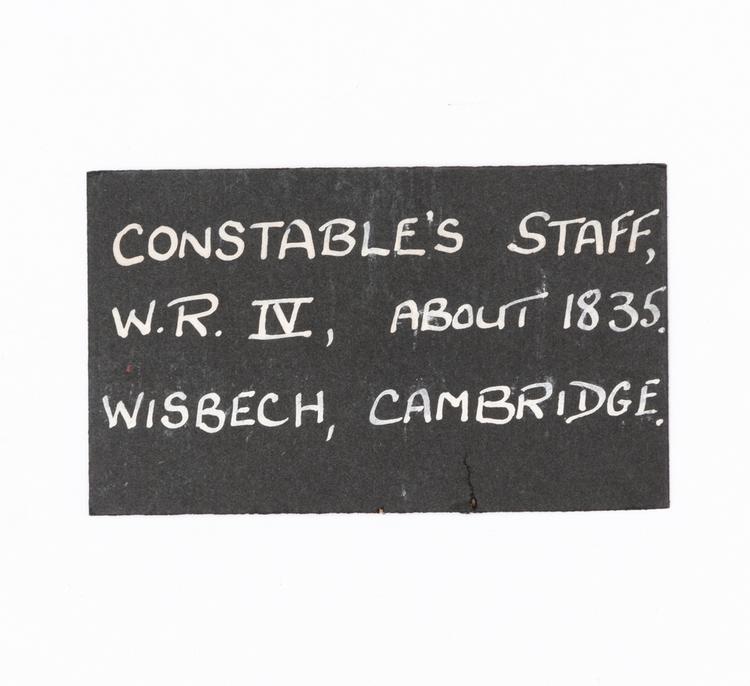 CONSTABLE'S STAFF,
W.R. IV, ABOUT 1835.
WISBECH, CAMBRIDGE.